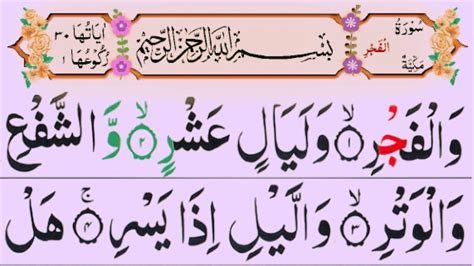 سُوْرَةُ الْفَجْرِ مَكِّيَّةٌ
بِسْمِ اللّٰهِ الرَّحْمٰنِ الرَّحِيْمِ
اٰيَاتُهَا ٣٠ رُكُوْعُهَا ١
وَالْفَجْرِ ۙ﴿۱﴾ وَلَيَالٍ عَشْرٍ ۙ﴿۲﴾ وَّالشَّفْعِ
وَالْوَتْرِ ۙ﴿۳﴾ وَالَّيْلِ اِذَا يَسْرِ ۚ﴿۴﴾ هَلْ